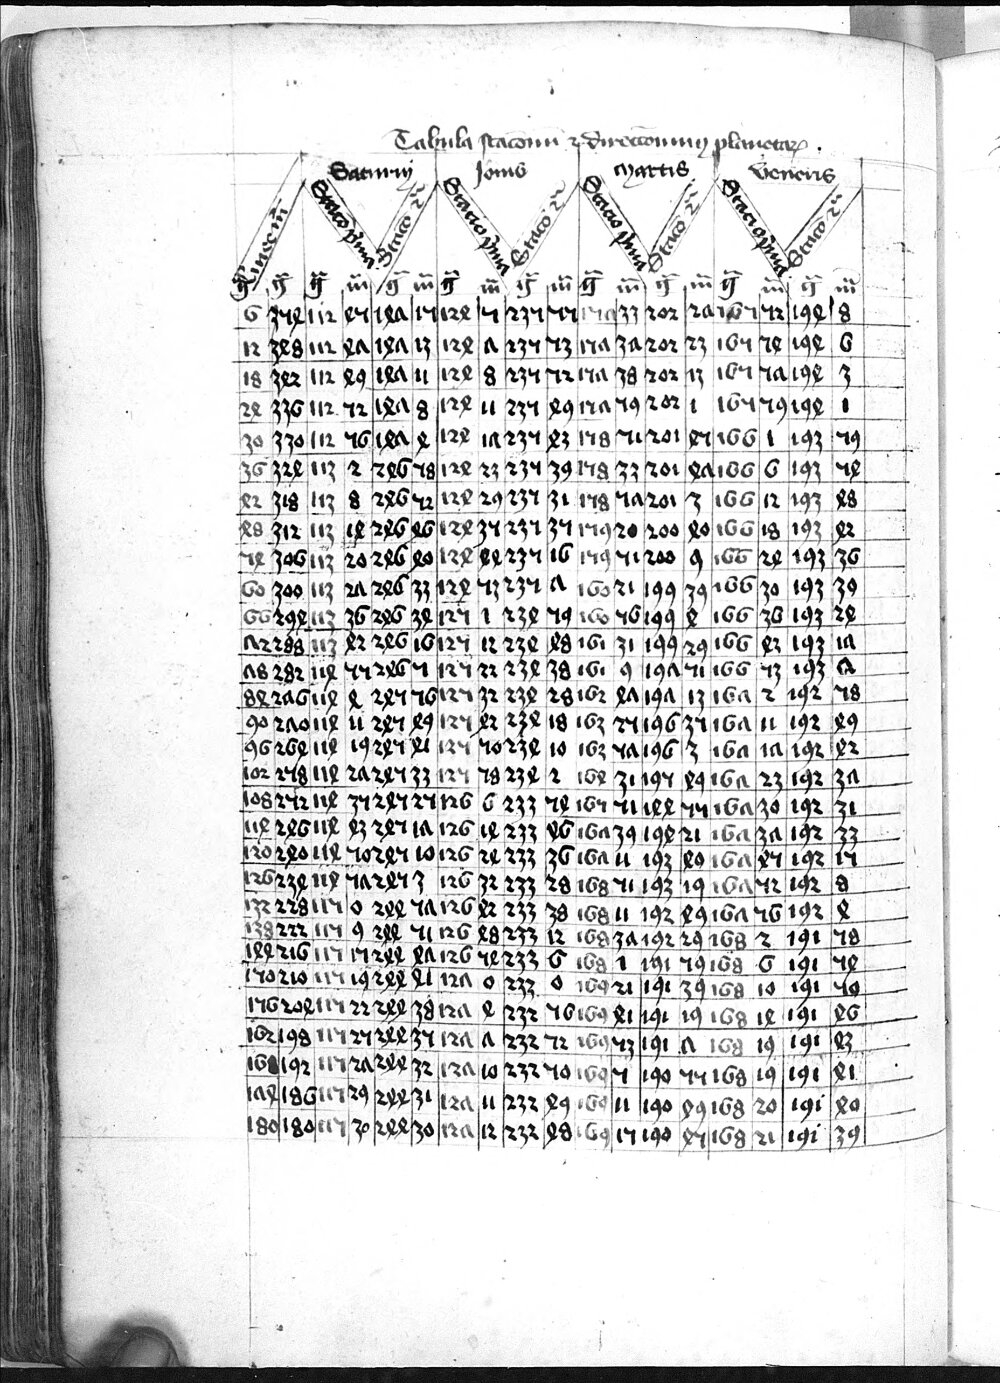 Tabula stacōnū ⁊ direccōnum planetarꝝ .
Saturni Jovis Martis Veneris
Linee nū̄i Stacō prima Stacō 2ᵃ Stacio prima Stacō 2ᵃ Stacio prima Stacō 2ᵃ Stacio prima Stacō 2ᵃ
g̅ g̅ g̅ m̅ g̅ m̅ g̅ m̅ g̅ m̅ g̅ m̅ g̅ m̅ g̅ m̅ g̅ m̅
6 354 112 45 247 15 124 5 235 55 157 33 202 27 165 52 194 8
12 348 112 47 247 13 124 7 235 53 157 37 202 23 165 54 194 6
18 342 112 49 247 11 124 8 235 52 157 38 202 13 165 57 194 3
24 336 112 52 247 8 124 11 235 49 157 59 202 1 165 59 194 1
30 330 112 56 247 4 124 17 235 43 158 51 201 45 166 1 193 59
36 324 113 2 246 58 124 23 235 39 158 33 201 47 166 6 193 54
42 318 113 8 246 52 124 29 235 31 158 57 201 3 166 12 193 48
48 312 113 14 246 46 124 35 235 35 159 20 200 40 166 18 193 42
54 306 113 20 246 40 124 44 235 16 159 51 200 9 166 24 193 36
60 300 113 27 246 33 124 53 235 7 160 21 199 39 166 30 193 39
66 294 113 36 246 34 125 1 234 59 160 56 199 4 166 36 193 24
72 288 113 42 246 16 125 12 234 48 161 31 199 29 166 43 193 17
78 282 114 55 246 5 125 22 234 38 161 9 197 51 166 53 193 7
84 276 114 4 245 56 125 32 234 28 162 47 197 13 167 2 192 58
90 270 114 11 245 49 125 42 234 18 163 25 196 35 167 11 192 49
96 264 114 19 245 41 125 50 234 10 163 57 196 3 167 17 192 42
102 258 114 27 245 33 125 58 234 2 164 31 195 49 167 23 192 37
108 252 114 35 245 25 126 6 233 54 165 51 144 55 167 30 192 31
114 246 114 43 245 17 126 14 233 46 167 39 194 21 167 37 192 33
120 240 114 50 245 10 126 24 233 36 167 11 193 40 167 45 192 15
126 234 114 57 245 3 126 32 233 28 168 51 193 19 167 52 192 8
132 228 115 0 244 57 126 42 233 38 168 11 192 49 167 56 192 4
138 222 115 9 244 51 126 48 233 12 168 37 192 29 168 2 191 58
144 216 115 15 244 47 126 54 233 6 168 1 191 59 168 6 191 54
150 210 115 19 244 41 127 0 233 0 169 21 191 39 168 10 191 50
156 204 115 22 244 38 127 4 232 56 169 41 191 19 168 14 191 46
162 198 115 25 244 35 127 7 232 52 169 53 191 7 168 19 191 43
168 192 115 27 244 32 127 10 232 50 169 5 190 55 168 19 191 41
174 186 115 29 244 31 127 11 232 49 169 11 190 49 168 20 191 40
180 180 115 30 244 30 127 12 232 48 169 15 190 45 168 21 191 39